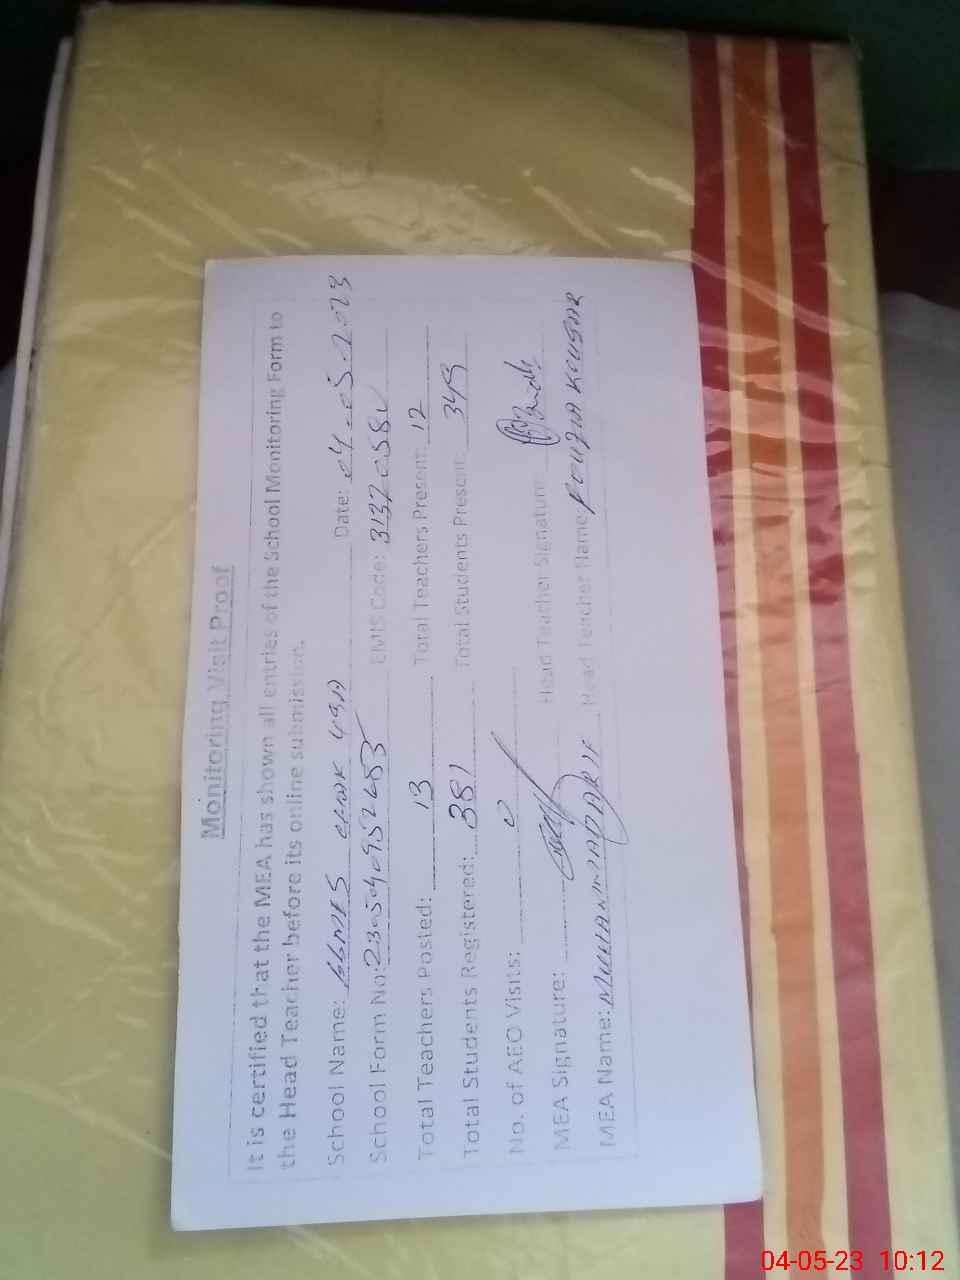 Monitoring Visit Proof
It is certified that the MEA has shown all entries of the School Monitoring Form to
the Head Teacher before its online submission.
School Name: GGMES CHAK 49A Date: 04-05-2023
School Form No: EMIS Code:
Total Teachers Posted: 13 Total Teachers Present: 12
Total Students Registered: 381 Total Students Present:
No. of AEO Visits: 0
MEA Signature: Head Teacher Signature:
MEA Name: MUHAMMAD ARIF Head Teacher Name: FOUZIA KOUSAR
04-05-23 10:12